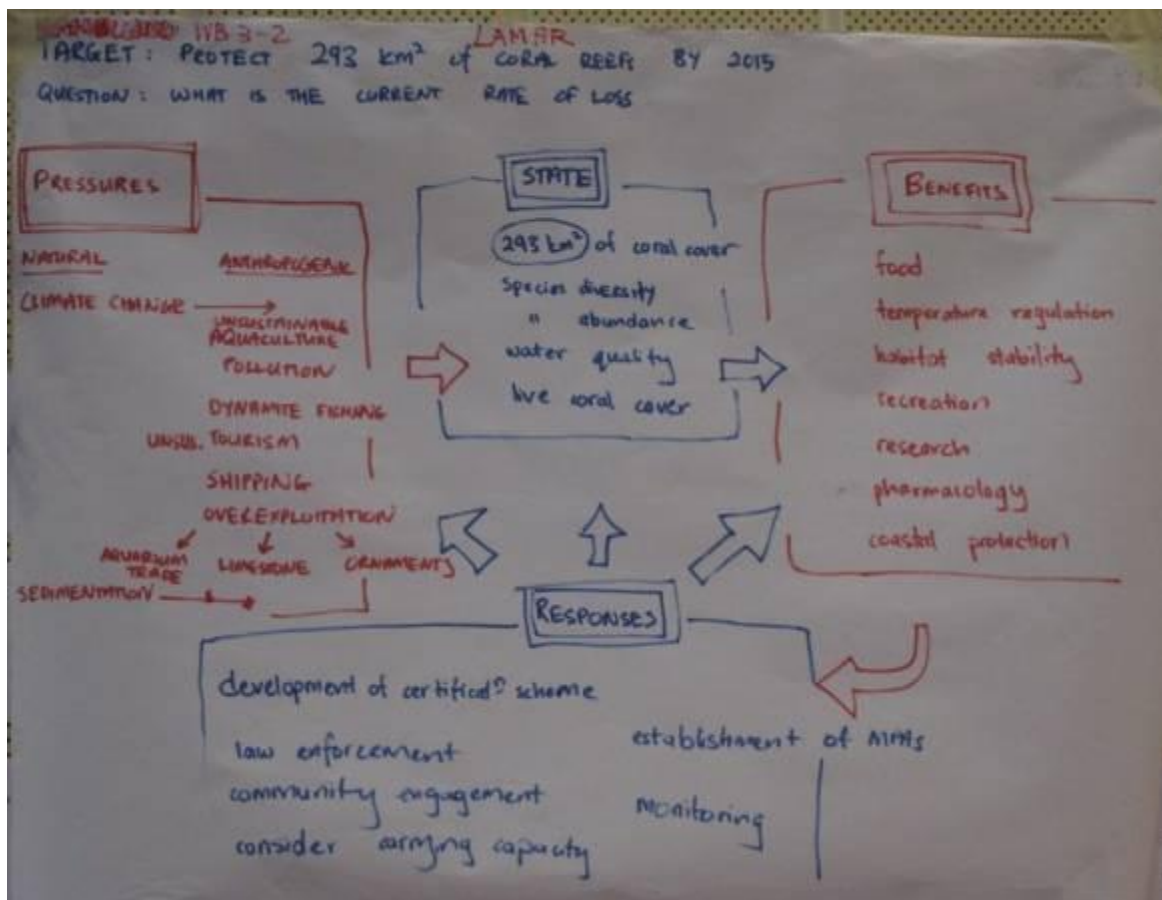 IVB 3-2 LAMAR
TARGET: PROTECT 293 km² of CORAL REEFS BY 2015
QUESTION: WHAT IS THE CURRENT RATE OF LOSS
PRESSURES
NATURAL
ANTHROPOGENIC
CLIMATE CHANGE
UNSUSTAINABLE
AQUACULTURE
POLLUTION
DYNAMITE FISHING
UNSUS. TOURISM
SHIPPING
OVEREXPLOITATION
AQUARIUM
TRADE
LIMESTONE
ORNAMENTS
SEDIMENTATION
STATE
293 km² of coral cover
species diversity
" abundance
water quality
live coral cover
BENEFITS
food
temperature regulation
habitat stability
recreation
research
pharmacology
coastal protection
RESPONSES
development of certificatn scheme
law enforcement
community engagement
consider carrying capacity
establishment of MPAs
monitoring